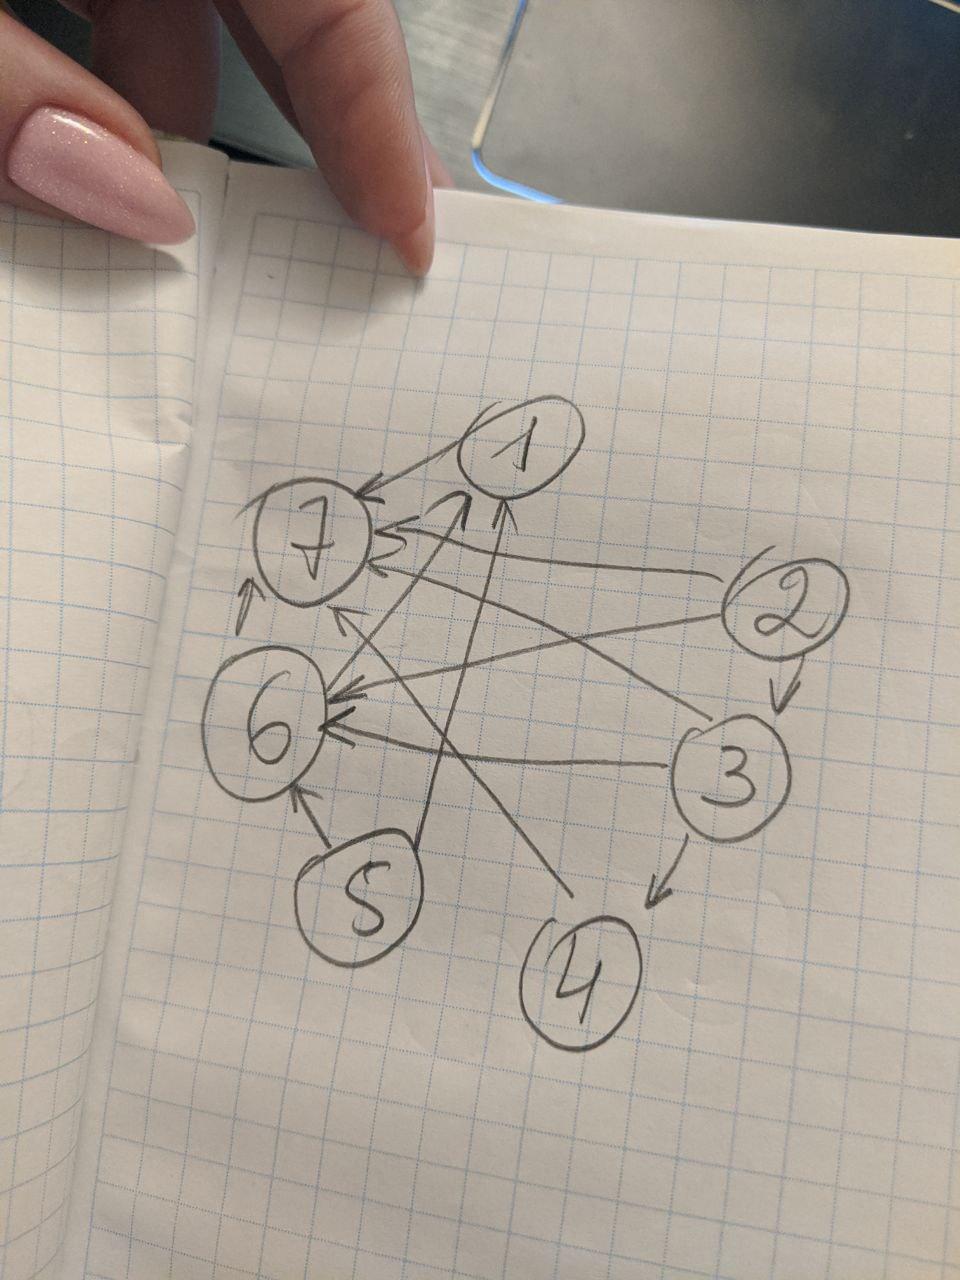 1
7
2
6
3
5
4